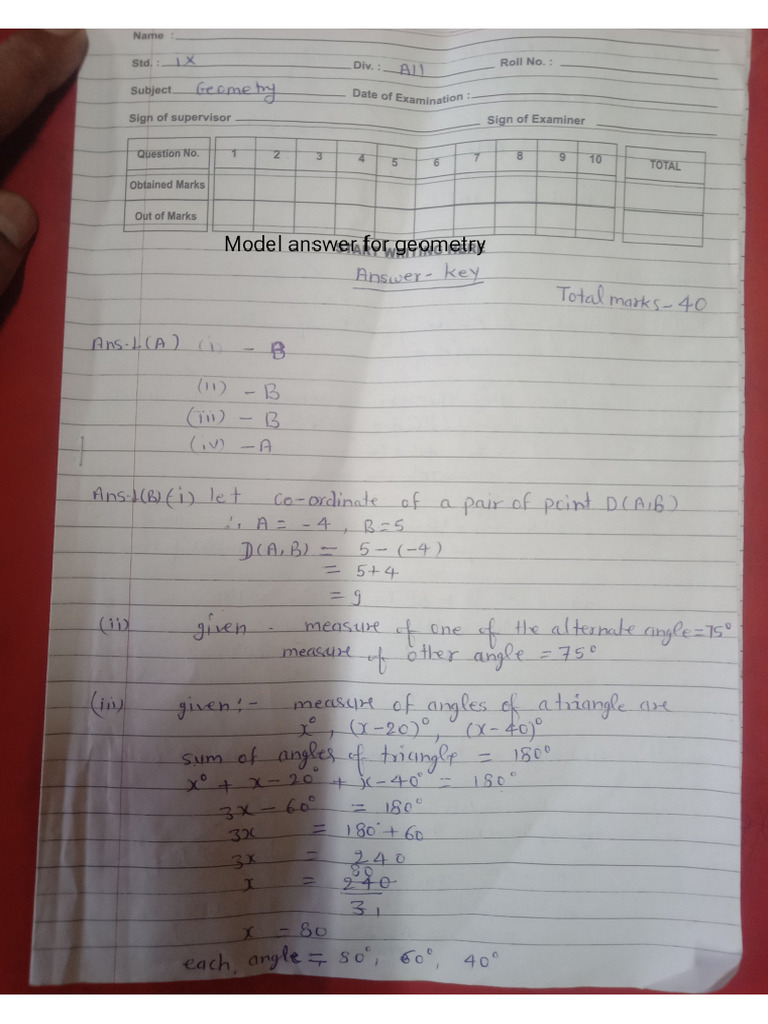 Name :
Std. : IX Div. : All Roll No. :
Subject Geometry Date of Examination :
Sign of supervisor Sign of Examiner
Question No. 1 2 3 4 5 6 7 8 9 10 TOTAL
Obtained Marks
Out of Marks
Model answer for geometry
START WRITING HERE
Answer - key
Total marks - 40
Ans-1(A) (i) - B
(ii) - B
(iii) - B
(iv) - A
Ans-1(B)(i) let co-ordinate of a pair of point D(A,B)
∴ A = -4 , B=5
D(A,B) = 5-(-4)
= 5+4
= 9
(ii) given - measure of one of the alternate angle=75°
measure of other angle = 75°
(iii) given:- measure of angles of a triangle are
x°, (x-20)°, (x-40)°
sum of angles of triangle = 180°
x° + x-20° + x-40° = 180°
3x-60° = 180°
3x = 180°+60
3x = 240
80
x = 240
3 1
x = 80
each angle = 80°, 60°, 40°